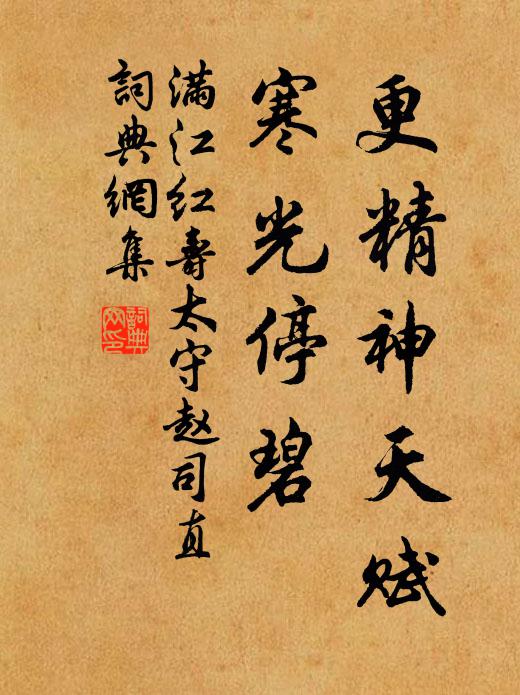 更精神天赋
寒光停碧
满江红寿太守赵司直
詞典網集
詞典網印